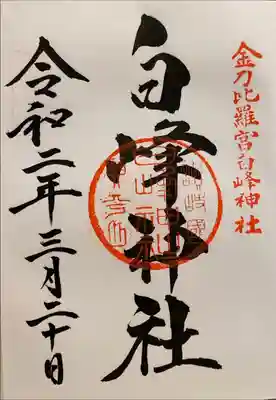 金刀比羅宮白峰神社
白峰神社
令和二年三月二十日